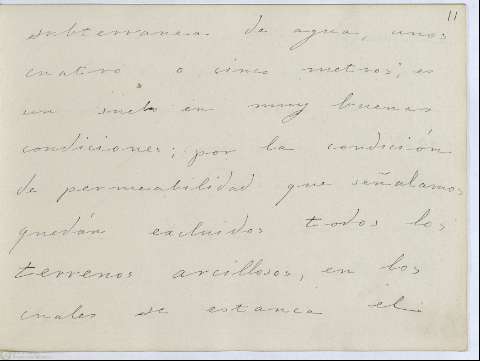 11
subterranea de agua, unos
cuatro o cinco metros; es
un suelo en muy buenas
condiciones; por la condición
de permeabilidad que señalamos
quedán excluidos todos los
terrenos arcillosos, en los
cuales se estanca el